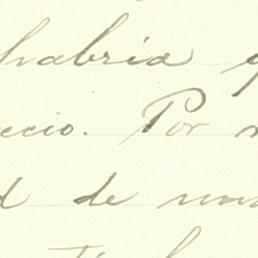 habria
ecio. Por
d de una